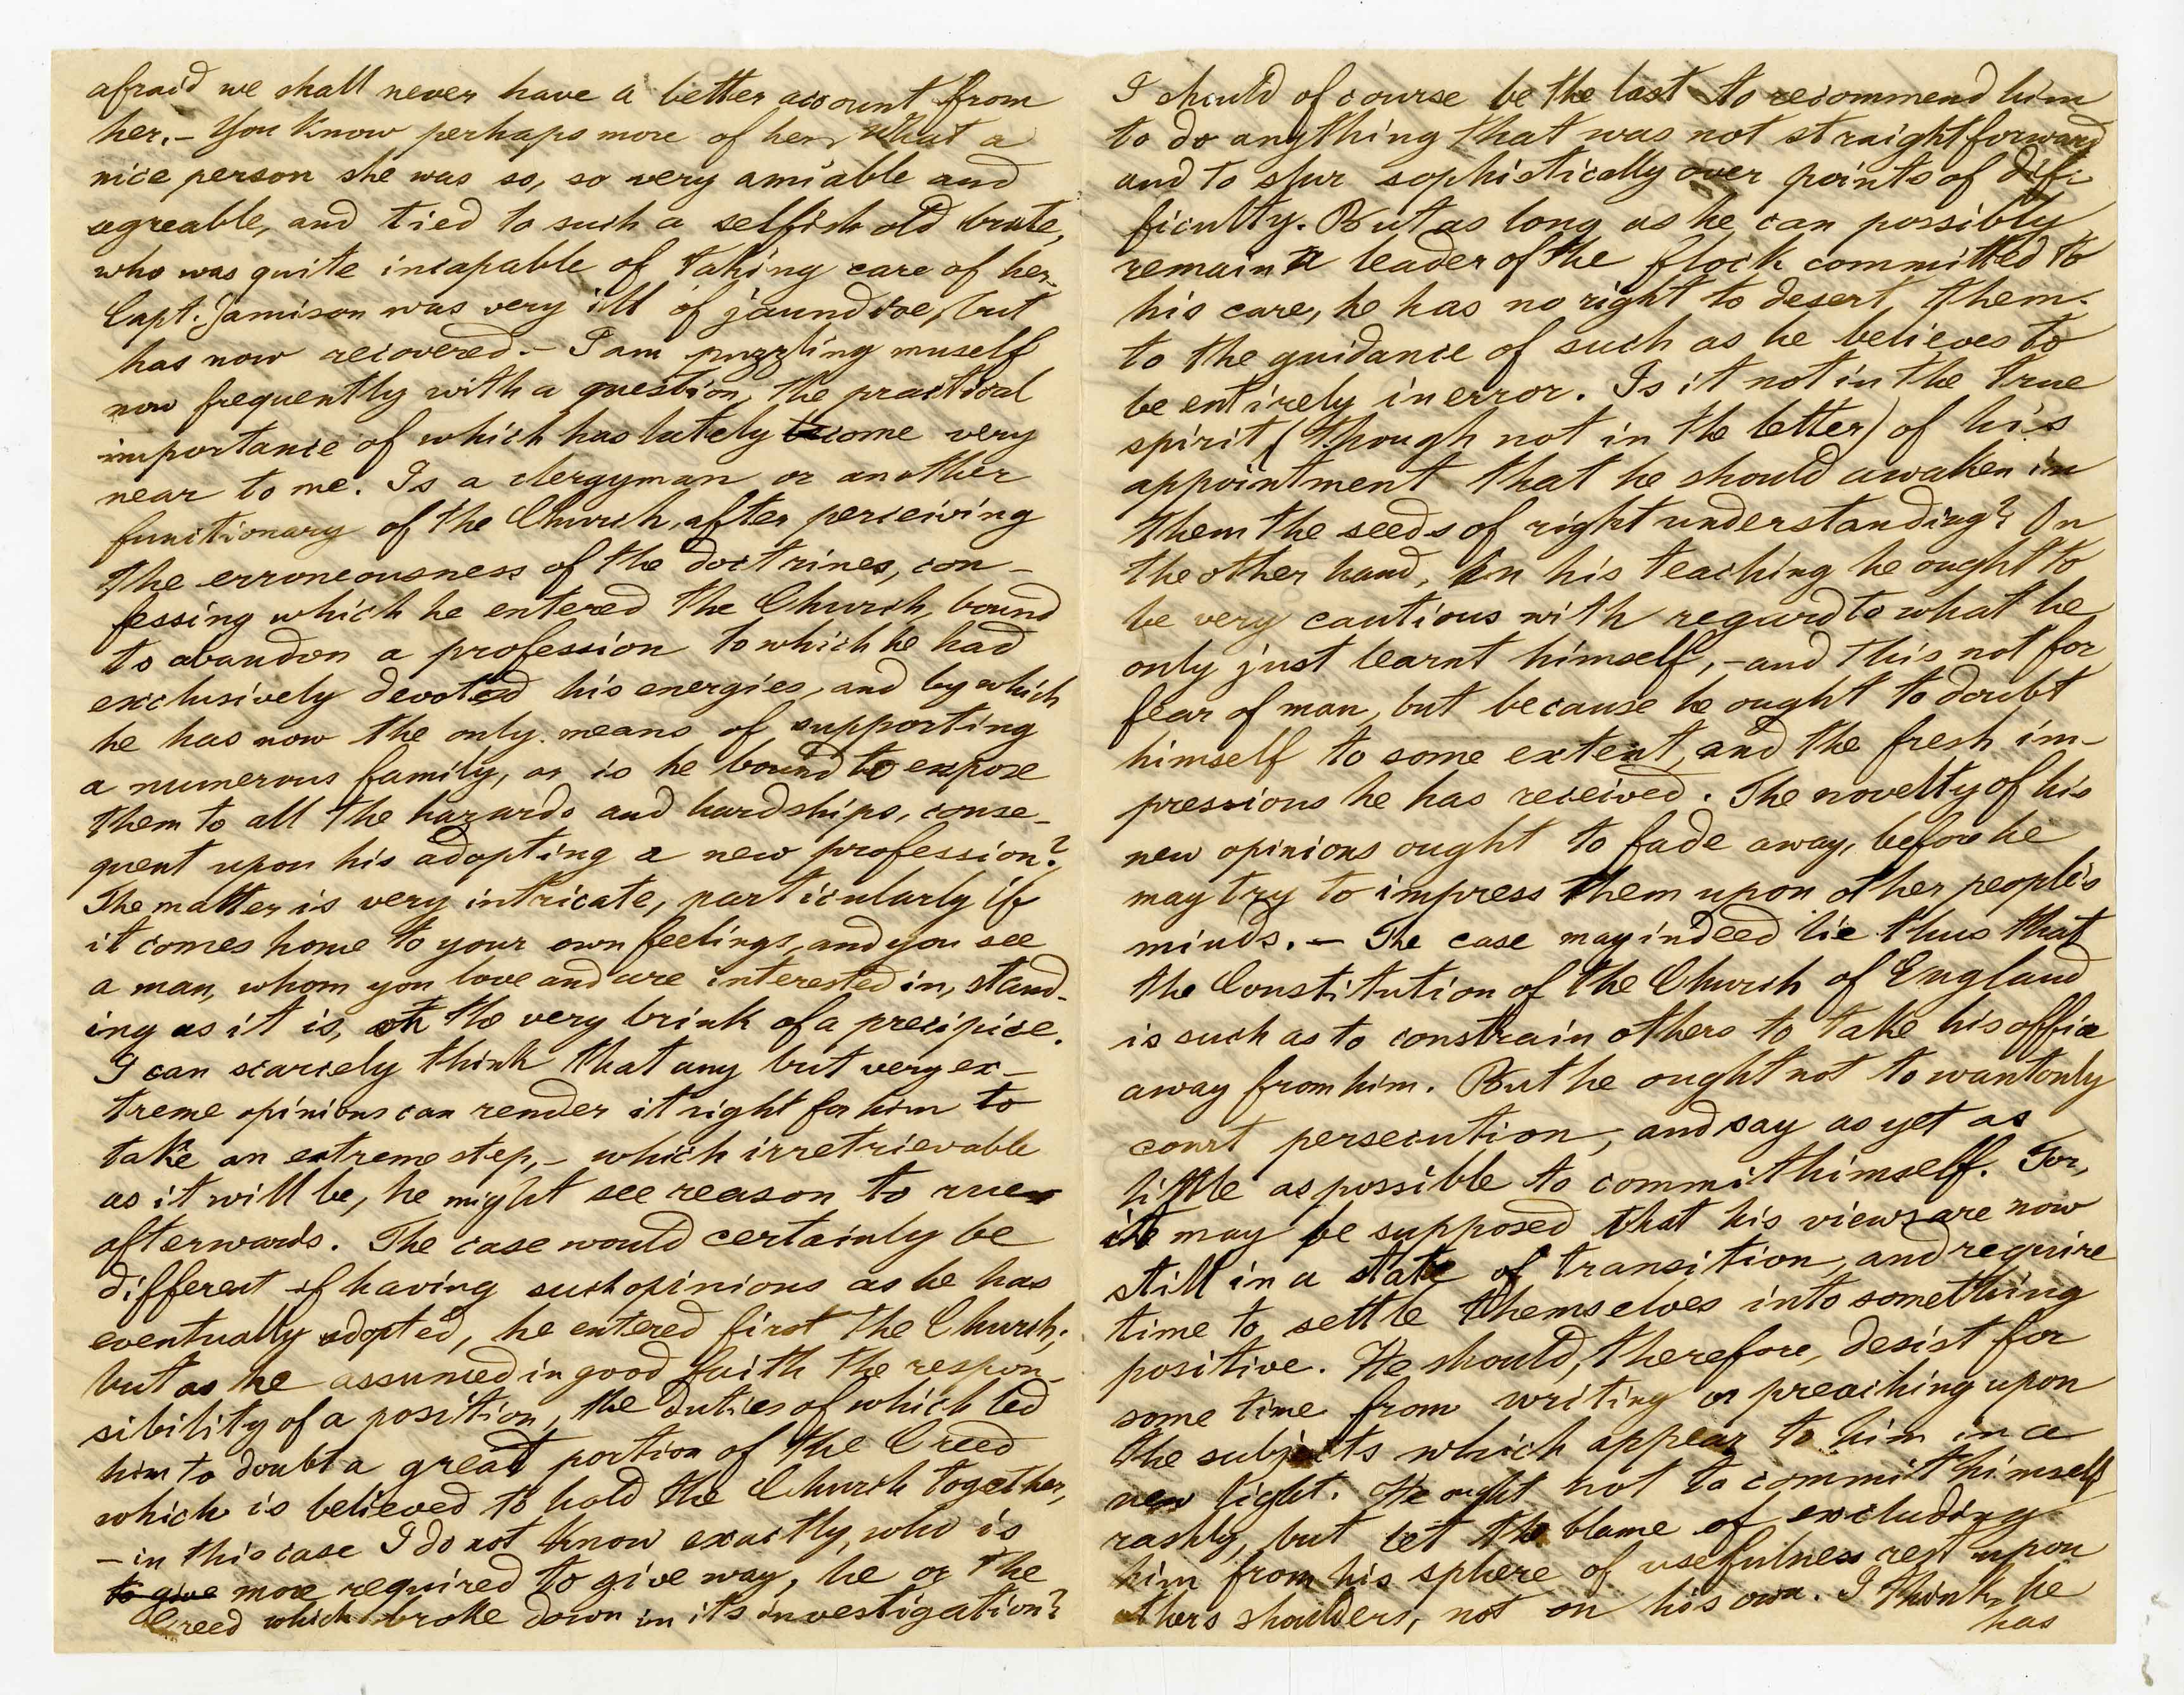 afraid we shall never have a better account from
her. – You Know perhaps more of her, what a
nice person she was so, so very amiable and
agreable, and tied to such a selfish old brute,
who was quite incapable of taking care of her.
Capt. Jamison was very ill of jaundice, but
has now recovered. – I am puzzling muself
now frequently with a question, the practical
importance of which has lately become very
near to me. Is a clergyman or another
functionary of the Church, after perceiving
the erroneousness of the doctrines, con-
fessing which he entered the Church, bound
to abandon a profession to which he had
exclusively devoted his energies, and by which
he has now the only means of supporting
a numerous family, or is he bound to expose
them to all the hazards and hardships, conse-
quent upon his adopting a new profession?
The matter is very intricate, particularly if
it comes home to your own feelings, and you see
a man, whom you love and are interested in, stand-
ing as it is, on the very brink of a precipice.
I can scarcely think that any but very ex-
treme opinions can render it right for him to
take an extreme step, – which irretrievable
as it will be, he might see reason to rue
afterwards. The case would certainly be
different if having such opinions as he has
eventually adopted, he entered first the Church;
but as he assumed in good faith the respon-
sibility of a position, the duties of which led
him to doubt a great portion of the Creed
which is believed to hold the Church together,
– in this case I do not know exactly, who is
to give more required to give way, he or the
Creed which broke down in its investigation?
I should of course be the last to recommend him
to do anything that was not straightforward
and to slur sophistically over points of dif-
ficulty. But as long as he can possibly
remain a leader of the flock committed to
his care, he has no right to desert them.
to the guidance of such as he believes to
be entirely in error. Is it not in the true
spirit (though not in the letter) of his
appointment that he should awaken in
them the seeds of right understanding? On
the other hand, in his teaching he ought to
be very cautious with regard to what he
only just learnt himself, – and this not for
fear of man, but because he ought to doubt
himself to some extent, and the fresh im-
pressions he has received. The novelty of his
new opinions ought to fade away, before he
may try to impress them upon other people's
minds. – The case may indeed lie thus that
the Constitution of the Church of England
is such as to constrain others to take his office
away from him. But he ought not to wantonly
court persecution, and say as yet as
little as possible to commit himself. For,
it may be supposed that his views are now
still in a state of transition, and require
time to settle themselves into something
positive. He should, therefore, desist for
some time from writing or preaching upon
the subjects which appear to him in a
new light. He ought not to commit himself
rashly, but let the blame of excluding
him from his sphere of usefulness rest upon
others shoulders, not on his own. I think, he
has